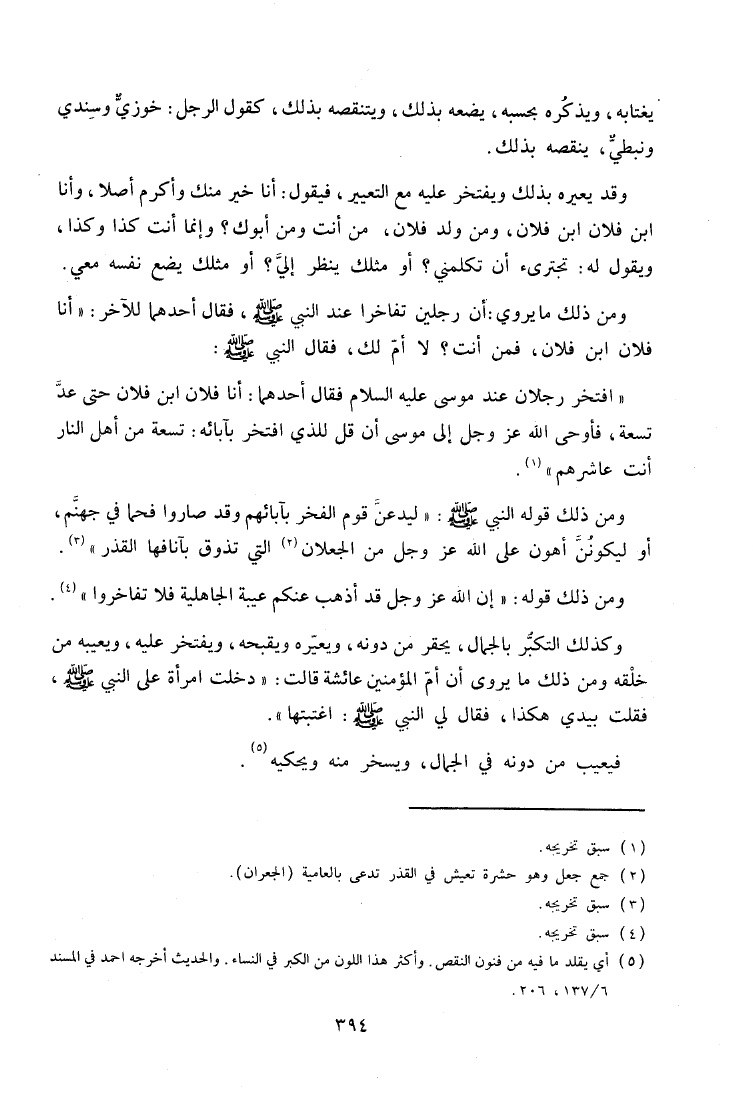 يغتابه ، ويذكُره بحسبه ، يضعه بذلك ، ويتنقصه بذلك ، كقول الرجل : خوزيٌّ وسِندي
ونبطيٌّ ، ينقصه بذلك .
وقد يعيره بذلك ويفتخر عليه مع التعيير ، فيقول : أنا خير منك وأكرم أصلا ، وأنا
ابن فلان ابن فلان ، ومن ولد فلان ، من أنت ومن أبوك ؟ وإنما أنت كذا وكذا ،
ويقول له : تجترىء أن تكلمني ؟ أو مثلك ينظر إليَّ ؟ أو مثلك يضع نفسه معي .
ومن ذلك ما يروي : أن رجلين تفاخرا عند النبي ﷺ ، فقال أحدهما للآخر : « أنا
فلان ابن فلان ، فمن أنت ؟ لا أمّ لك ، فقال النبي ﷺ :
« افتخر رجلان عند موسى عليه السلام فقال أحدهما : أنا فلان ابن فلان حتى عدَّ
تسعة ، فأوحى الله عز وجل إلى موسى أن قل للذي افتخر بآبائه : تسعة من أهل النار
أنت عاشرهم » (١) .
ومن ذلك قوله النبي ﷺ : « ليدعنَّ قوم الفخر بآبائهم وقد صاروا فحما في جهنَّم ،
أو ليكونُنَّ أهون على الله عز وجل من الجعلان (٢) التي تذوق بآنافها القذر » (٣) .
ومن ذلك قوله : « إن الله عز وجل قد أذهب عنكم عيبة الجاهلية فلا تفاخروا » (٤) .
وكذلك التكبُّر بالجمال ، يحقر من دونه ، ويعيّره ويقبحه ، ويفتخر عليه ، ويعيبه من
خلْقه ومن ذلك ما يروى أن أمّ المؤمنين عائشة قالت : « دخلت امرأة على النبي ﷺ ،
فقلت بيدي هكذا ، فقال لي النبي ﷺ : اغتبتها » .
فيعيب من دونه في الجمال ، ويسخر منه ويحكيه (٥) .
(١) سبق تخريجه .
(٢) جمع جعل وهو حشرة تعيش في القذر تدعى بالعامية (الجعران) .
(٣) سبق تخريجه .
(٤) سبق تخريجه .
(٥) أي يقلد ما فيه من فنون النقص . وأكثر هذا اللون من الكبر في النساء . والحديث أخرجه احمد في المسند
٦/ ١٣٧ ، ٢٠٦ .
٣٩٤